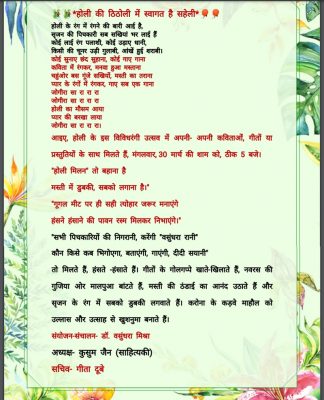 *होली की ठिठोली में स्वागत है सहेली*
होली के रंग में रंगने की बारी आई है,
सृजन की पिचकारी सब सखियां भर लाई हैं
कोई लाई रंग पलाशी, कोई उड़ाए धानी,
किसी की चूनर उड़ी गुलाबी, आंखें हुई शराबी।
कोई सुनाए छंद सुहाना, कोई गाए गाना
कविता में रंगकर, मनवा हुआ मस्ताना
चहुंओर बस गूंजे सखियों, मस्ती का तराना
प्यार के रंगों में रंगकर, गाए सब एक गाना
जोगीरा सा रा रा रा
जोगीरा सा रा रा रा
होली का मौसम आया
प्यार की बरखा लाया
जोगीरा सा रा रा रा।
आइए, होली के इस विविधरंगी उत्सव में अपनी- अपनी कविताओं, गीतों या
प्रस्तुतियों के साथ मिलते हैं, मंगलवार, 30 मार्च की शाम को, ठीक 5 बजे।
"होली मिलन" तो बहाना है
मस्ती में डुबकी, सबको लगाना है।"
"गूगल मीट पर ही सही त्योहार जरूर मनाएंगे
हंसने हंसाने की पावन रस्म मिलकर निभाएंगे।"
"सभी पिचकारियों की निगरानी, करेंगी "वसुंधरा रानी"
कौन किसे कब भिगोएगा, बताएंगी, गाएंगी, दीदी सयानी"
तो मिलते हैं, हंसते -हंसाते हैं। गीतों के गोलगप्पे खाते-खिलाते हैं, नवरस की
गुजिया ओर मालपुआ बांटते हैं, मस्ती की ठंडाई का आनंद उठाते हैं और
सृजन के रंग में सबको डुबकी लगवाते हैं। करोना के कड़वे माहौल को
उल्लास और उत्साह से खुशनुमा बनाते हैं।
संयोजन-संचालन- डॉ. वसुंधरा मिश्रा
अध्यक्ष- कुसुम जैन (साहित्यकी)
सचिव- गीता दूबे